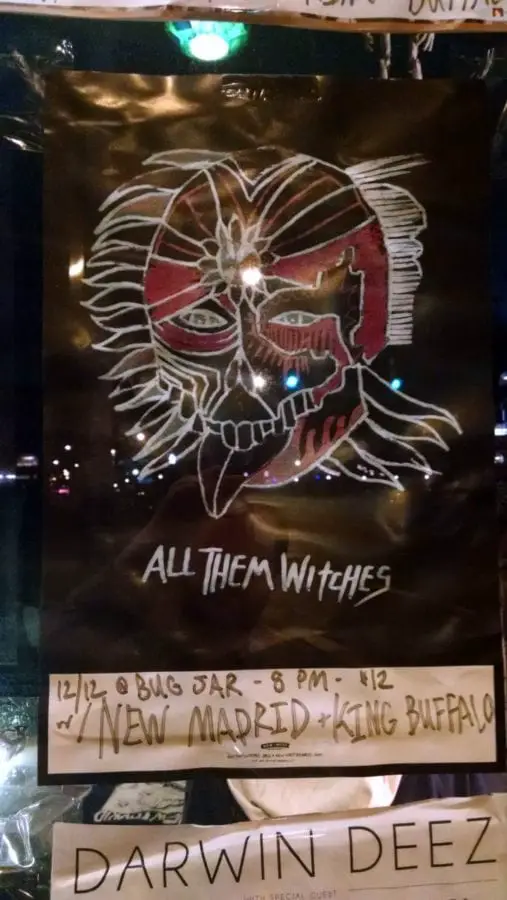 ALL THEM WITCHES
12/12 @ BUG JAR - 8 PM - $12
w/ NEW MADRID + KING BUFFALO
DARWIN DEEZ
WITH SPECIAL GUEST